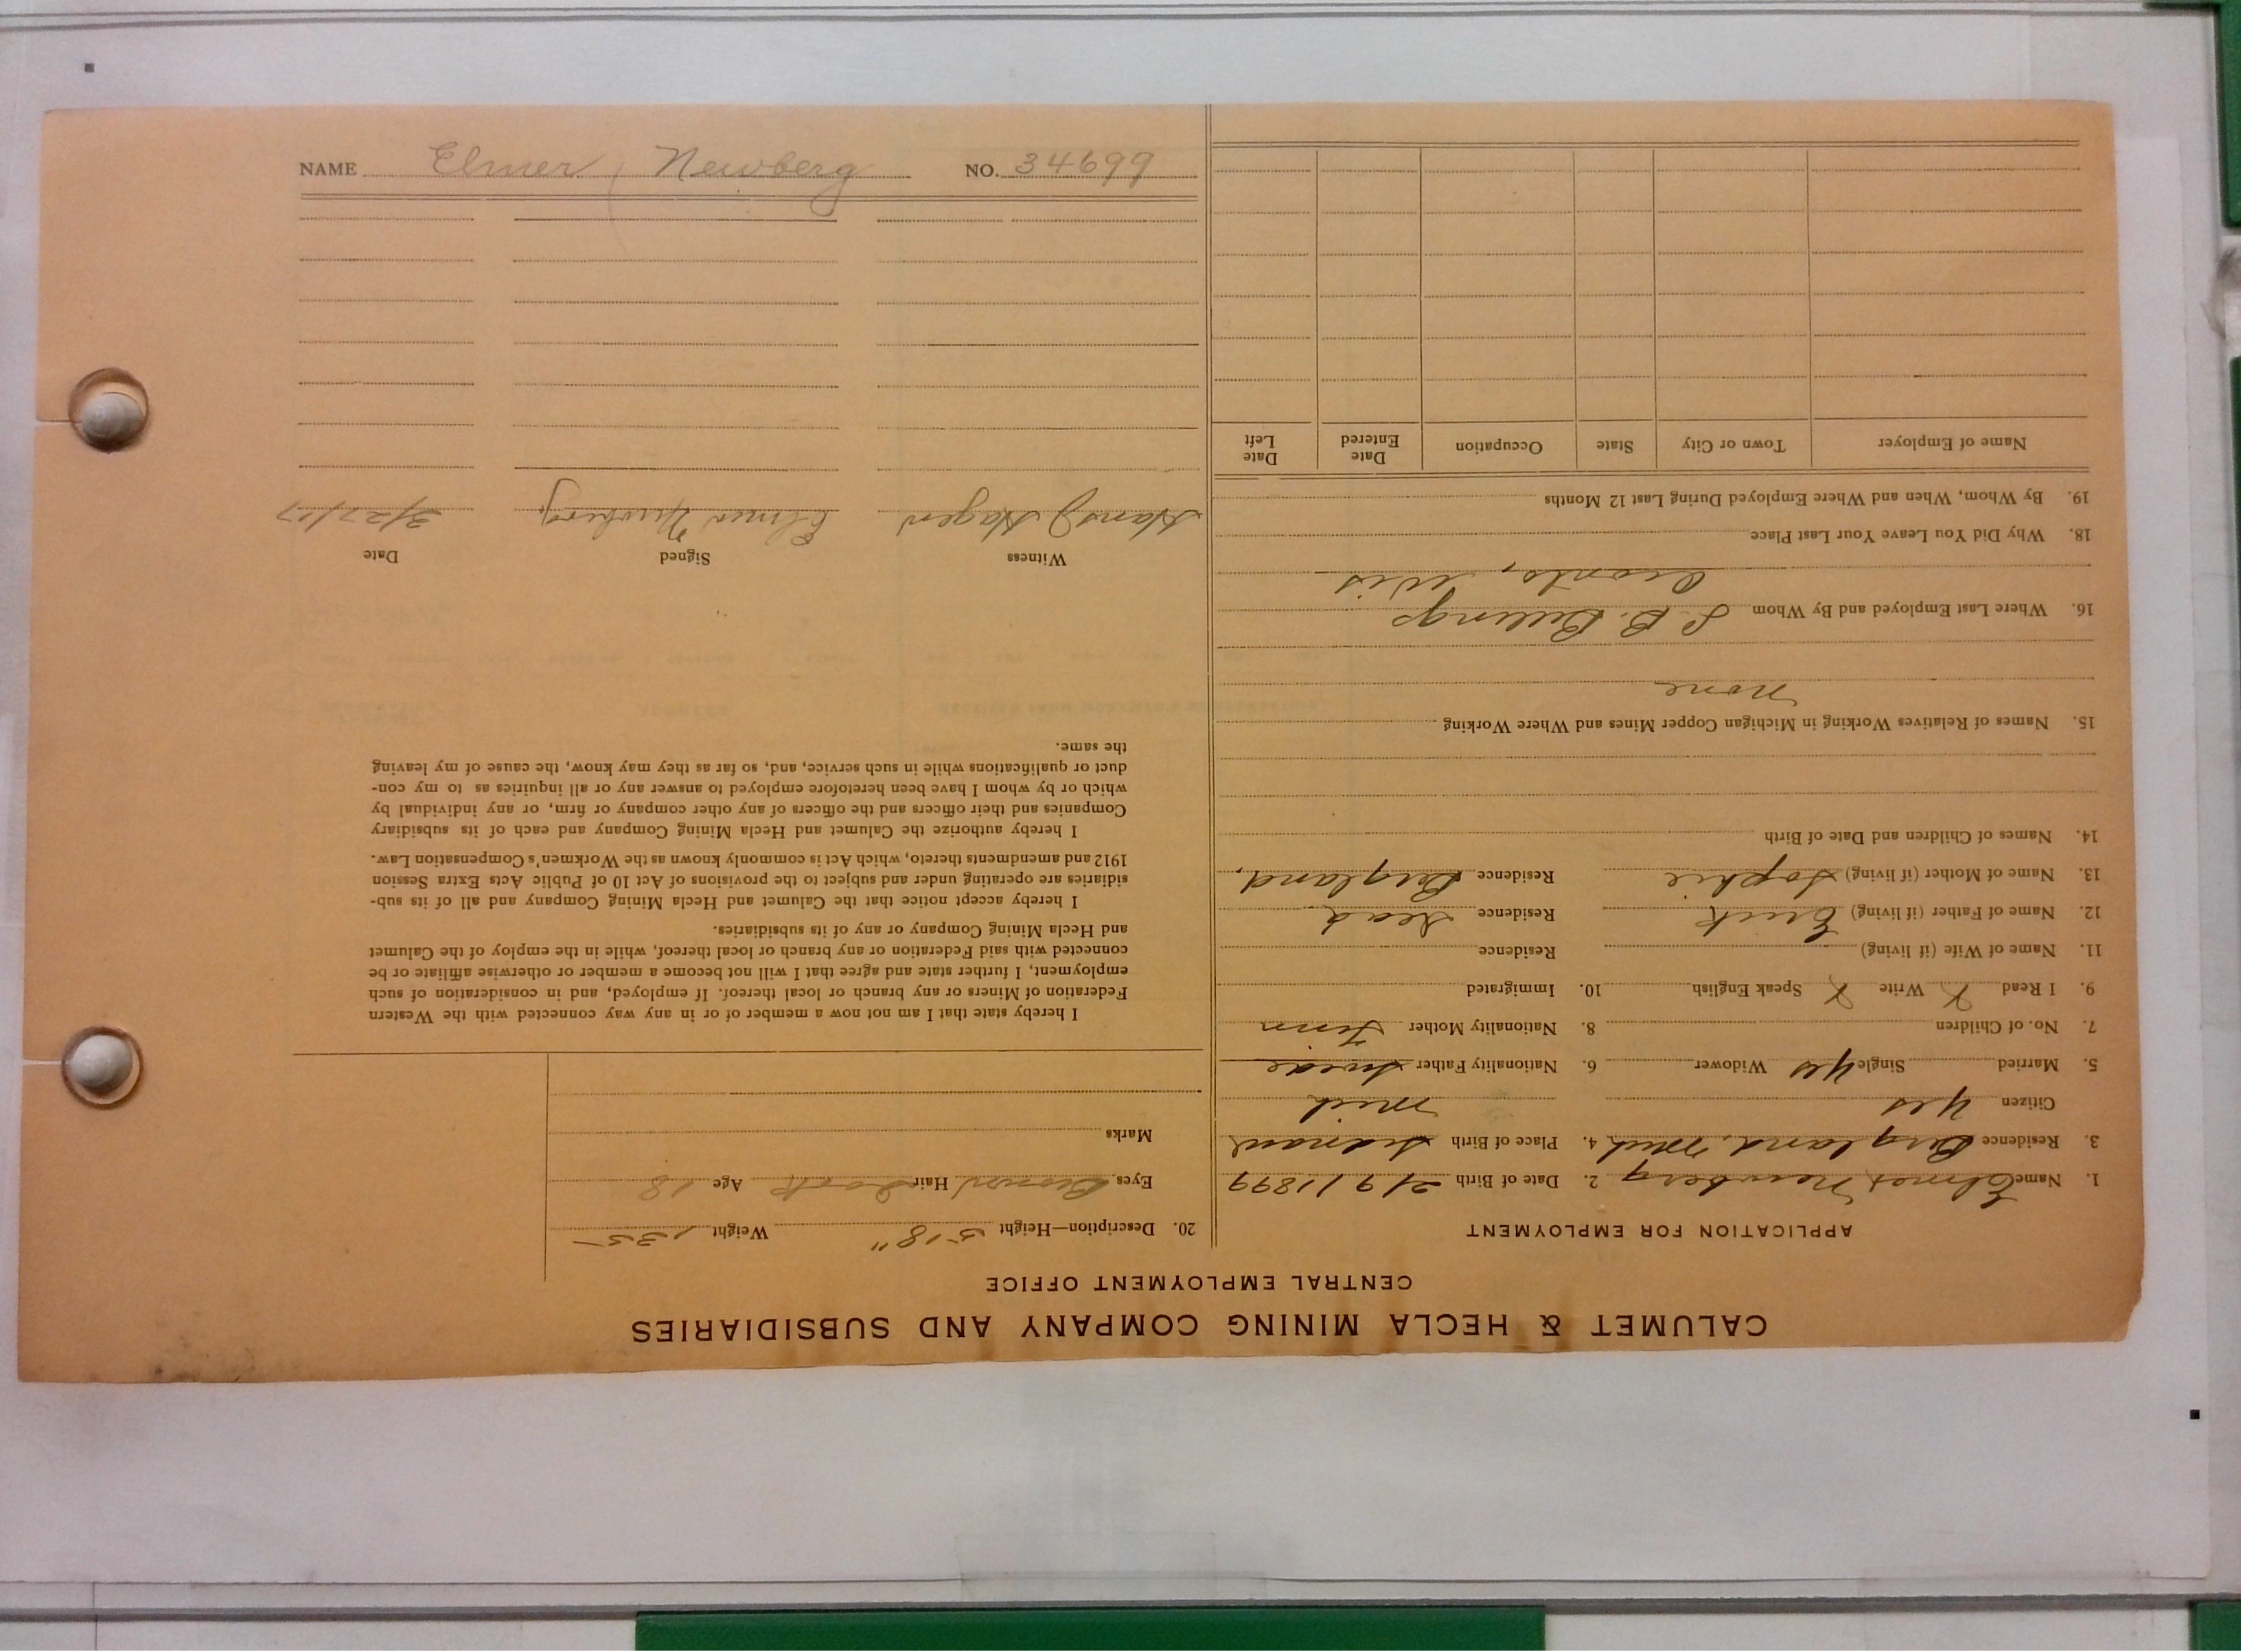 CALUMET & HECLA MINING COMPANY AND SUBSIDIARIES
CENTRAL EMPLOYMENT OFFICE
APPLICATION FOR EMPLOYMENT
1. Name Elmer Newberg 2. Date of Birth 2/9/1899
3. Residence Bergland, Mich 4. Place of Birth Sidnaw
Citizen yes Mich
5. Married Single yes Widower 6. Nationality Father Swede
7. No. of Children 8. Nationality Mother Finn
9. I Read X Write X Speak English 10. Immigrated
11. Name of Wife (if living) Residence
12. Name of Father (if living) Erick Residence dead
13. Name of Mother (if living) Sophie Residence Bergland,
14. Names of Children and Date of Birth
15. Names of Relatives Working in Michigan Copper Mines and Where Working
None
16. Where Last Employed and By Whom L. B. Billings
Oconto, Wis
18. Why Did You Leave Your Last Place
19. By Whom, When and Where Employed During Last 12 Months
Name of Employer Town or City State Occupation Date Entered Date Left
20. Description—Height 5'8" Weight 135
Eyes Brown Hair dark Age 18
Marks
I hereby state that I am not now a member of or in any way connected with the Western
Federation of Miners or any branch or local thereof. If employed, and in consideration of such
employment, I further state and agree that I will not become a member or otherwise affiliate or be
connected with said Federation or any branch or local thereof, while in the employ of the Calumet
and Hecla Mining Company or any of its subsidiaries.
I hereby accept notice that the Calumet and Hecla Mining Company and all of its sub-
sidiaries are operating under and subject to the provisions of Act 10 of Public Acts Extra Session
1912 and amendments thereto, which Act is commonly known as the Workmen's Compensation Law.
I hereby authorize the Calumet and Hecla Mining Company and each of its subsidiary
Companies and their officers and the officers of any other company or firm, or any individual by
which or by whom I have been heretofore employed to answer any or all inquiries as to my con-
duct or qualifications while in such service, and, so far as they may know, the cause of my leaving
the same.
Witness Signed Date
Hans J Hagen Elmer Newberg 3/27/17
NAME Elmer Newberg NO. 34699